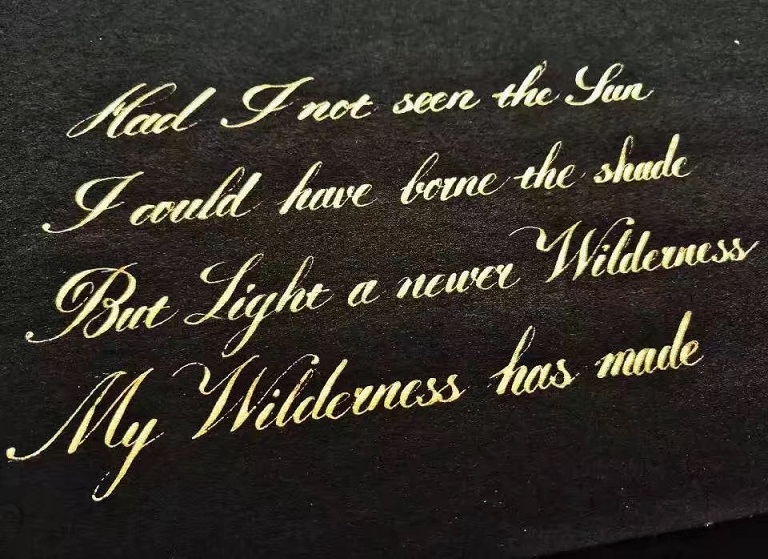 Had I not seen the Sun
I could have borne the shade
But Light a newer Wilderness
My Wilderness has made